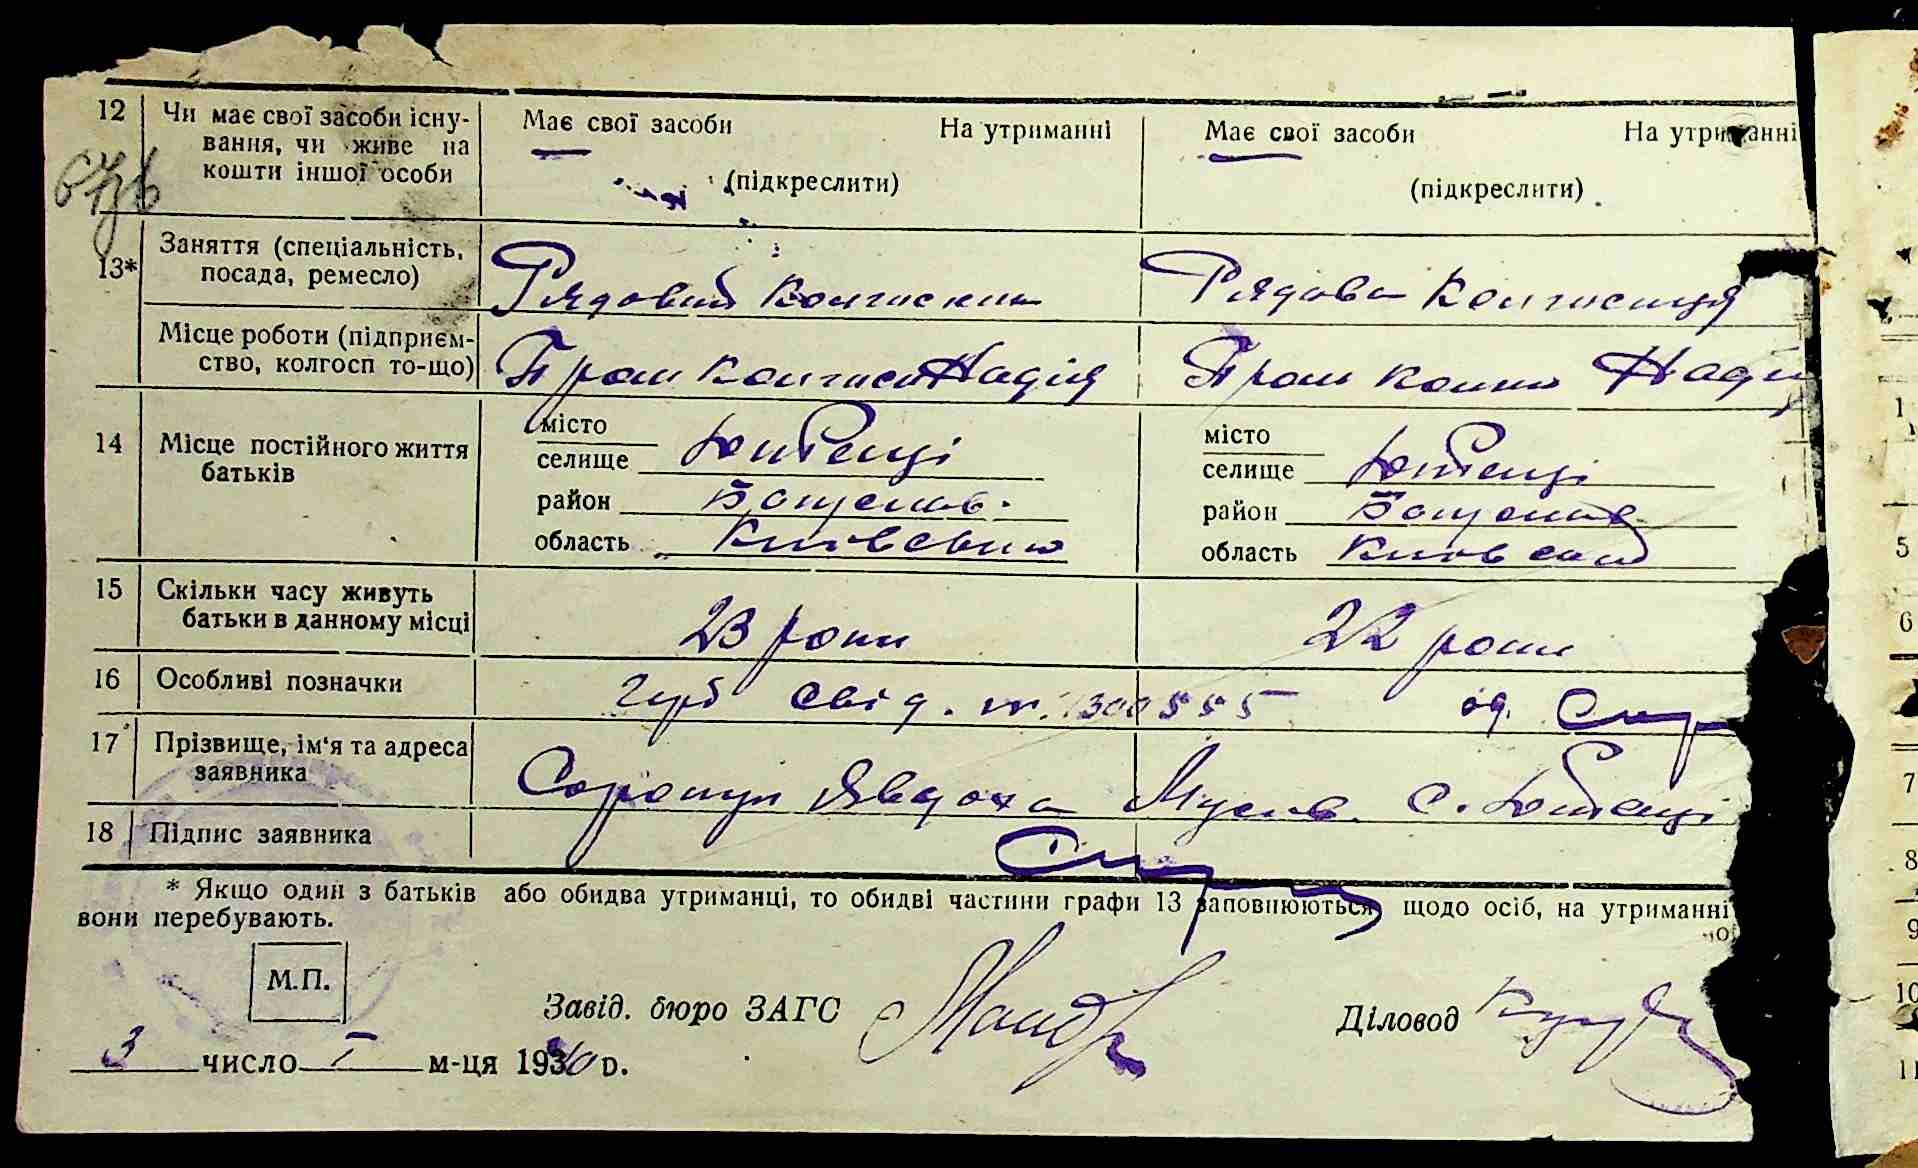 12 Чи має свої засоби існу-
вання, чи живе на
кошти іншої особи
Має свої засоби На утриманні
(підкреслити)
Має свої засоби На утриманні
(підкреслити)
13* Заняття (спеціальність,
посада, ремесло)
Рядовий колгоспник
Рядова колгоспниця
Місце роботи (підприєм-
ство, колгосп то-що)
колгосп Надія
Надія
14 Місце постійного життя
батьків
місто
селище Ютенці
район Богуслав.
область Київський
місто
селище Ютенці
район Богуслав
область Київский
15 Скільки часу живуть
батьки в данному місці
23 роки
22 роки
16 Особливі позначки
герб свід. 1300555 од.
17 Прізвище, ім'я та адреса
заявника
Явдоха Мусіїв. с. Ютенці
18 Підпис заявника
* Якщо один з батьків або обидва утриманці, то обидві частини графи 13 заповнюються щодо осіб, на утриманні
вони перебувають.
М.П.
Завід. бюро ЗАГС
Діловод
3 число I м-ця 1940 р.
1
5
6
7
8
9
10
11